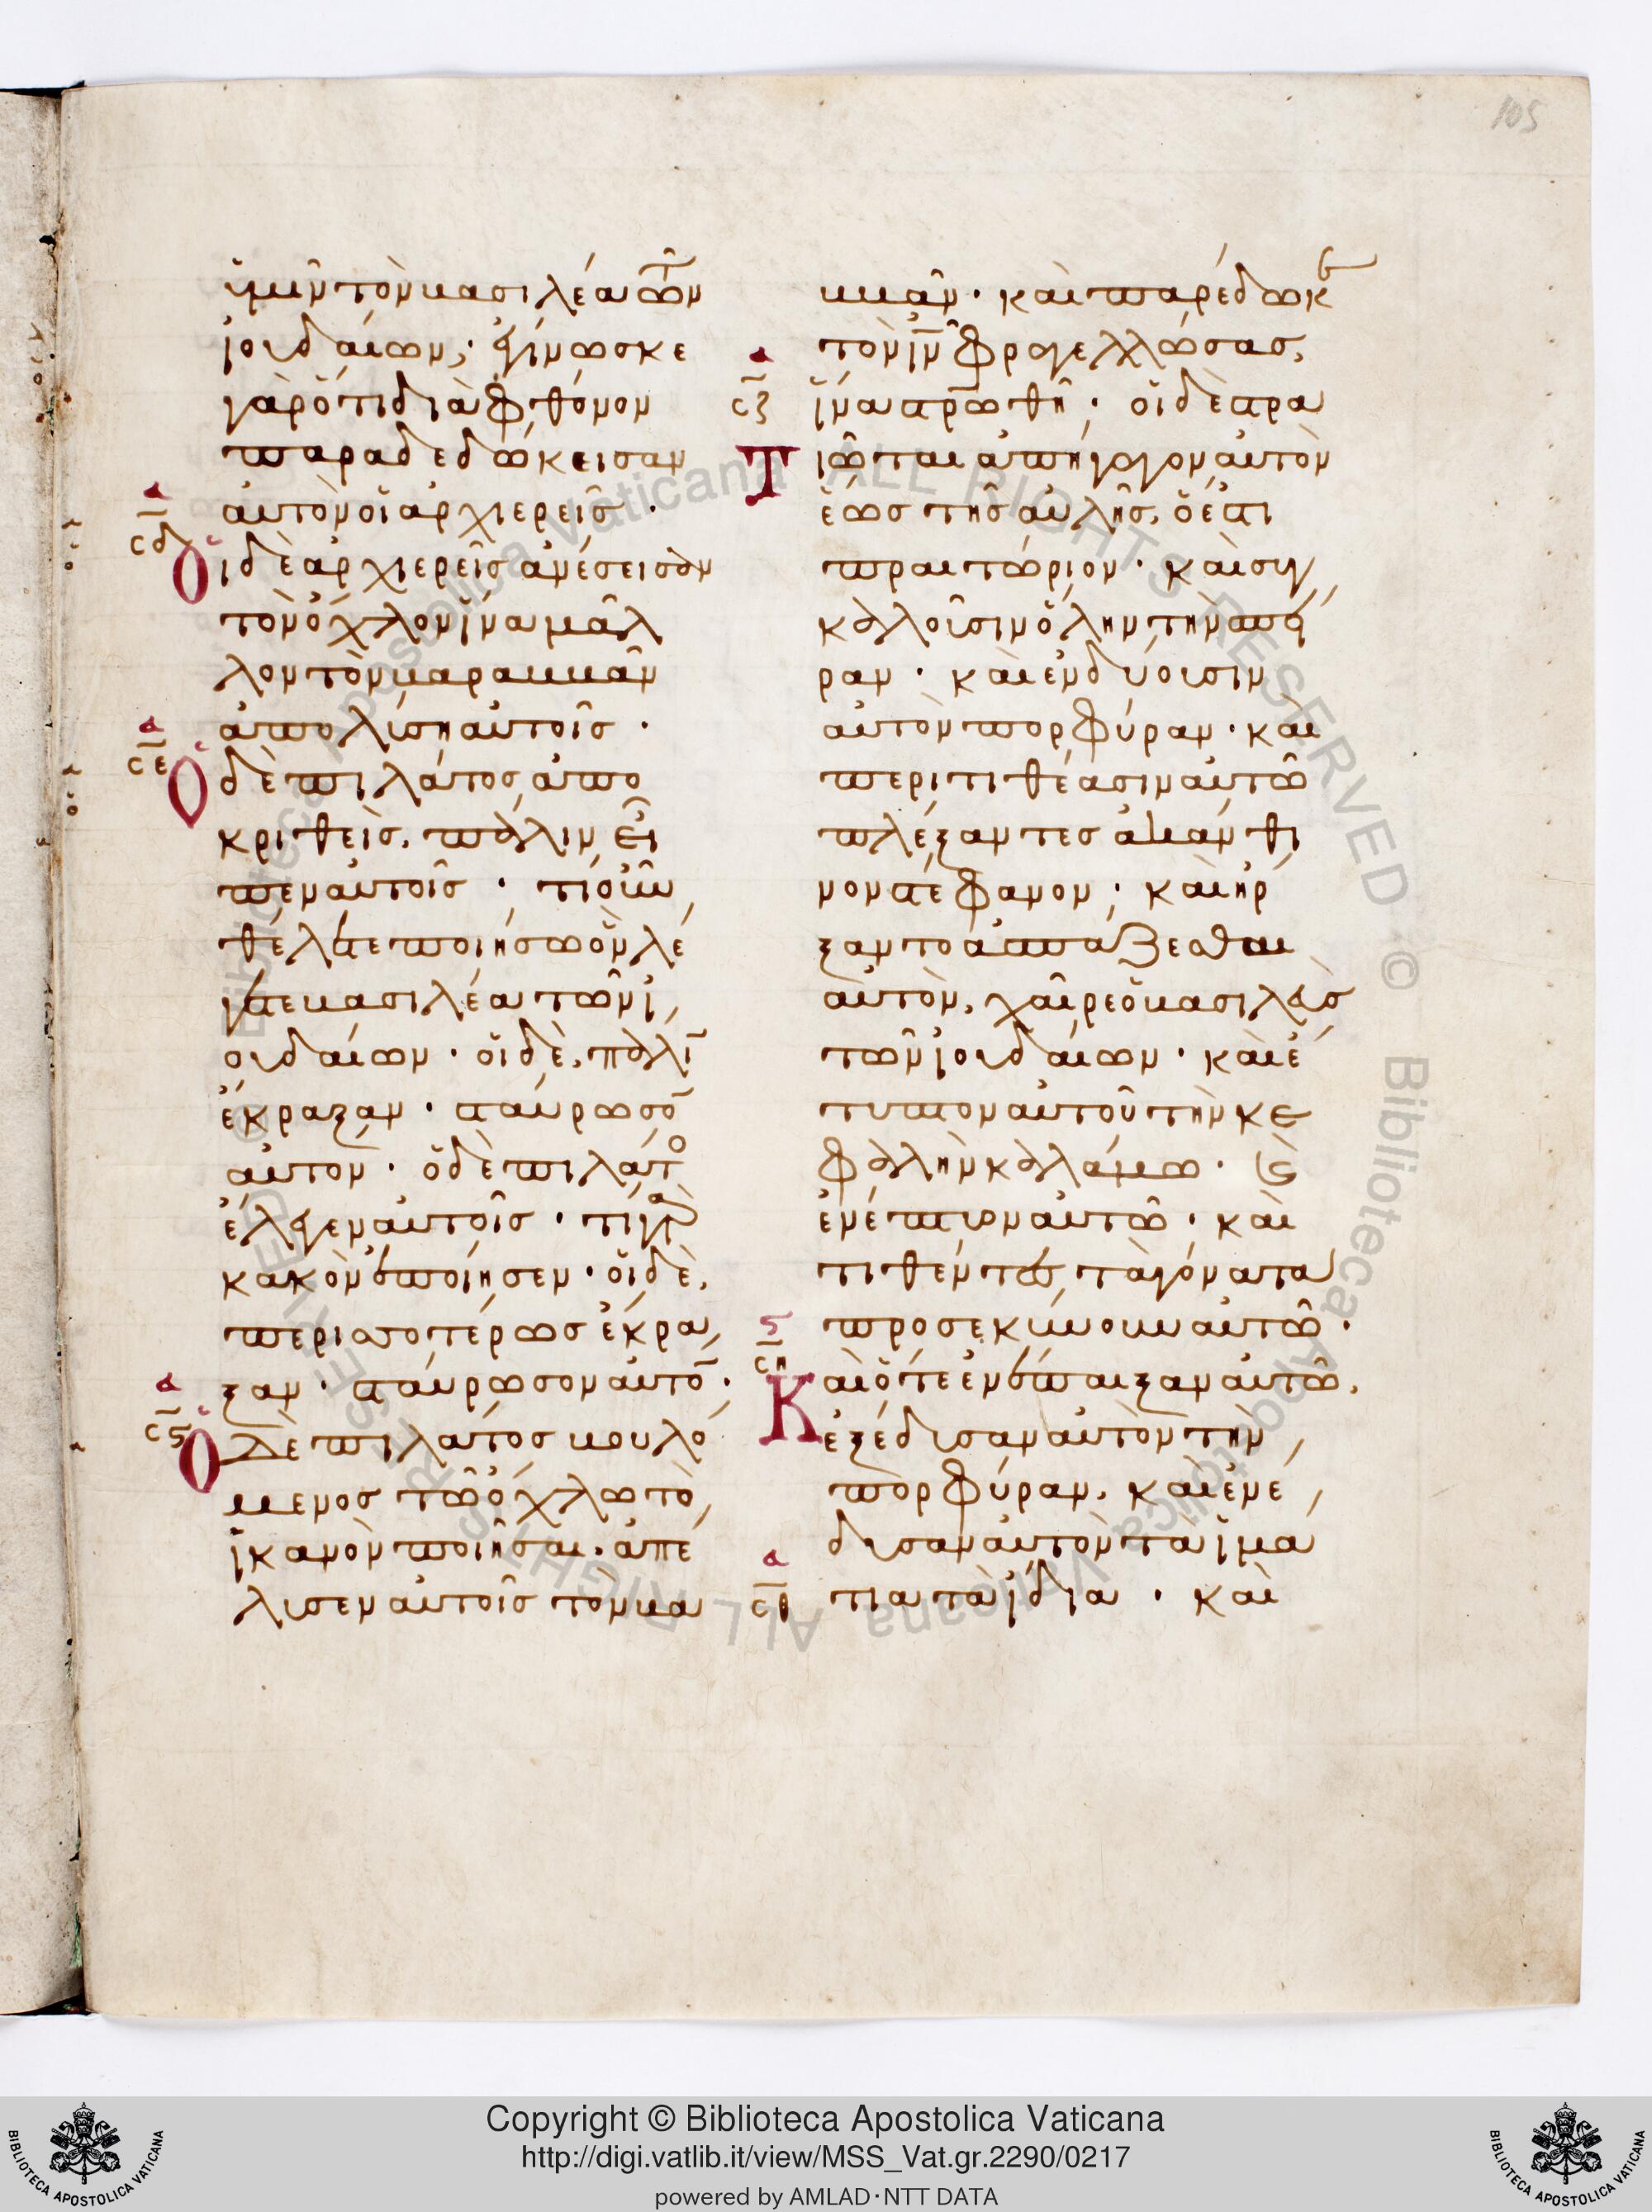 105
ὑμῖν τὸν βασιλέα τῶν
ἰουδαίων; ἐγίνωσκε
γὰρ ὅτι διὰ φθόνον
παραδεδώκεισαν
αὐτὸν οἱ ἀρχιερεῖς ·
α
σδ
Οἱ δὲ ἀρχιερεῖς ἀνέσεισαν
τὸν ὄχλον ἵνα μᾶλ
λον τὸν βαραββᾶν
ἀπολύσῃ αὐτοῖς ·
α
σε
Ὁ δὲ πιλάτος ἀπο
κριθεὶς, πάλιν εἶ
πεν αὐτοῖς · τί οὖν
θέλετε ποιήσω ὃν λέ
γετε βασιλέα τῶν ἰ
ουδαίων · οἱ δὲ, πάλῑ
ἔκραξαν · σταύρωσō
αὐτόν · ὁ δὲ πιλάτο
ἔλεγεν αὐτοῖς · τί γὰρ
κακὸν ἐποίησεν · οἱ δὲ,
περισσοτέρως ἔκρα
ξαν · σταύρωσον αὐτō ·
α
σϛ
Ὁ δὲ πιλάτος βουλό
μενος τῶ ὄχλω τὸ
ἱκανὸν ποιῆσαι · ἀπέ
λυσεν αὐτοῖς τὸν βα
ββᾶν · καὶ παρέδωκε
τὸν ῑν̄ φραγελλώσας,
α
σζ
ἵνα σταυρωθῆ · οἱ δὲ στρα
Τιῶται ἀπήγαγον αὐτὸν
ἔσω τῆς αὐλῆς, ὅ ἐστι
πραιτώριον · καὶ συγ
καλοῦσιν ὅλην τὴν σπεῖ
ραν · καὶ ἐνδύουσιν
αὐτὸν πορφύραν · καὶ
περιτιθέασιν αὐτῶ
πλέξαντες ἀκάνθι
νον στέφανον · καὶ ἤρ
ξαντο ἀσπάζεσθαι
αὐτὸν, χαῖρε ὁ βασιλεὺς
τῶν ἰουδαίων · καὶ ἔ
τυπτον αὐτοῦ τὴν κε
φαλὴν καλάμω · καὶ
ἐνέπτυον αὐτῶ · καὶ
τιθέντες τὰ γόνατα
προσεκύνουν αὐτῶ ·
ϛ
ση
Καὶ ὅτε ἐνέπαιξαν αὐτῶ,
ἐξέδυσαν αὐτὸν τὴν
πορφύραν, καὶ ἐνέ
δυσαν αὐτὸν τὰ ἱμά
α
σθ
τια τὰ ἴδια · καὶ
Copyright © Biblioteca Apostolica Vaticana
http://digi.vatlib.it/view/MSS_Vat.gr.2290/0217
powered by AMLAD·NTT DATA
BIBLIOTECA APOSTOLICA VATICANA
BIBLIOTECA APOSTOLICA VATICANA
Biblioteca Apostolica Vaticana ALL RIGHTS RESERVED ©
Biblioteca Apostolica Vaticana ALL RIGHTS RESERVED ©